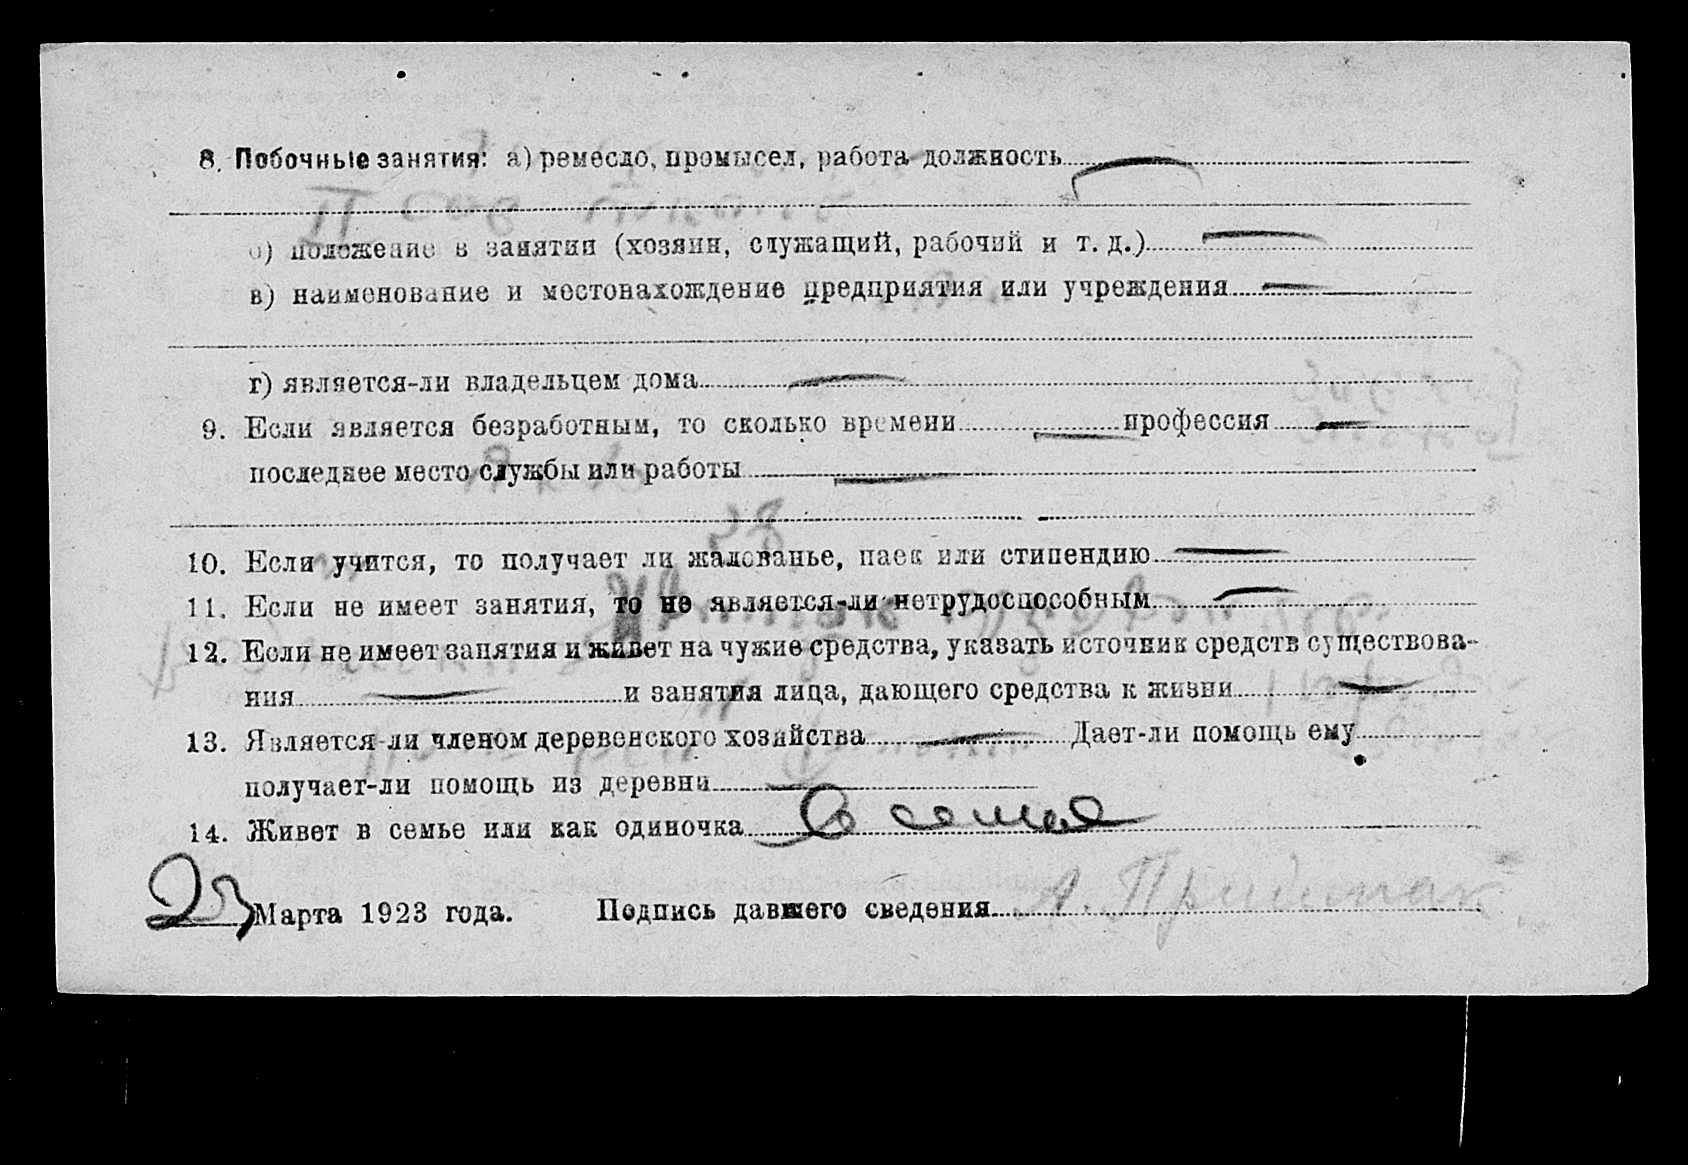 8. Побочные занятия: а) ремесло, промысел, работа должность
б) положение в занятии (хозяин, служащий, рабочий и т. д.)
в) наименование и местонахождение предприятия или учреждения
г) является-ли владельцем дома
9. Если является безработным, то сколько времени профессия
последнее место службы или работы
10. Если учится, то получает ли жалованье, паек или стипендию
11. Если не имеет занятия, то не является-ли нетрудоспособным
12. Если не имеет занятия и живет на чужие средства, указать источник средств существова-
ния и занятия лица, дающего средства к жизни
13. Является-ли членом деревенского хозяйства Дает-ли помощь ему
получает-ли помощь из деревни
14. Живет в семье или как одиночка в семье
Марта 1923 года. Подпись давшего сведения А.